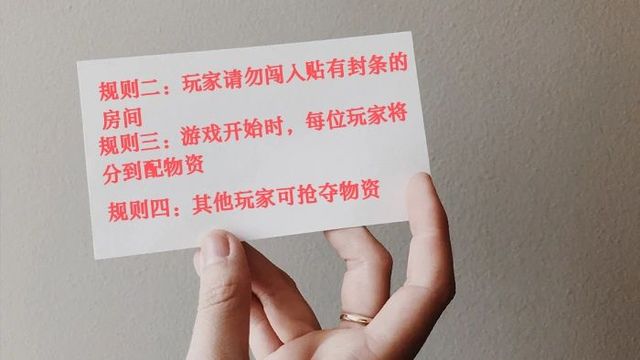 规则二：玩家请勿闯入贴有封条的
房间
规则三：游戏开始时，每位玩家将
分到配物资
规则四：其他玩家可抢夺物资